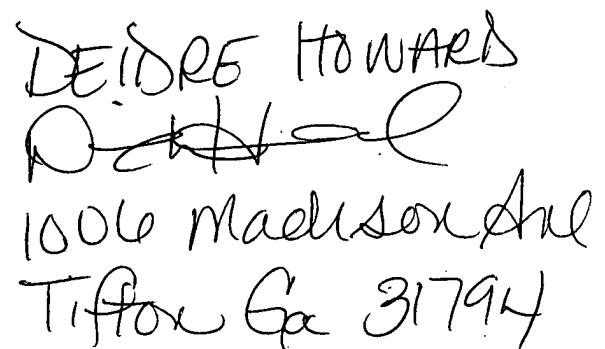 DEIDRE HOWARD
1006 Madison Ave
Tifton Ga 31794